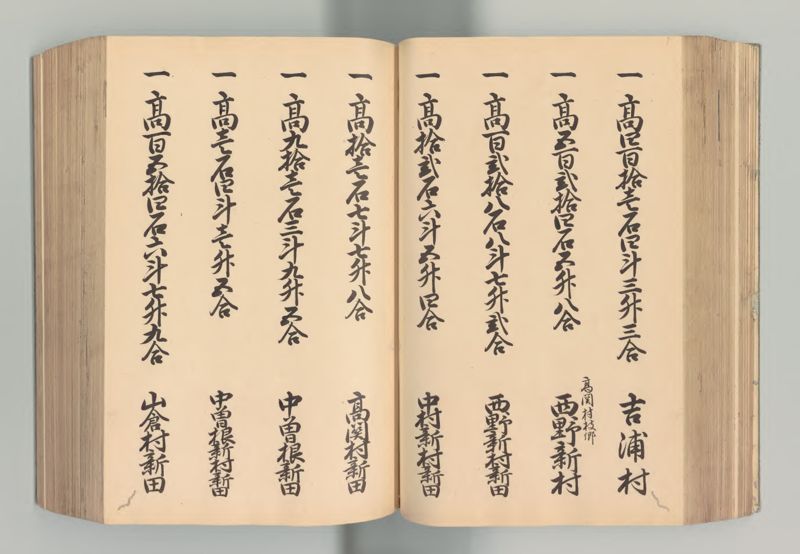 一 高四百拾壱石四斗三升三合 吉浦村
高関村枝郷
一 高五百弐拾四石五升八合 西野新村
一 高百弐拾八石八斗七升弐合 西野新村新田
一 高拾弐石六斗五升四合 中村新村新田
一 高拾壱石七斗七升八合 高関村新田
一 高九拾壱石三斗九升五合 中曽根新田
一 高壱石四斗壱升五合 中曽根新村新田
一 高百五拾四石六斗七升九合 山倉村新田